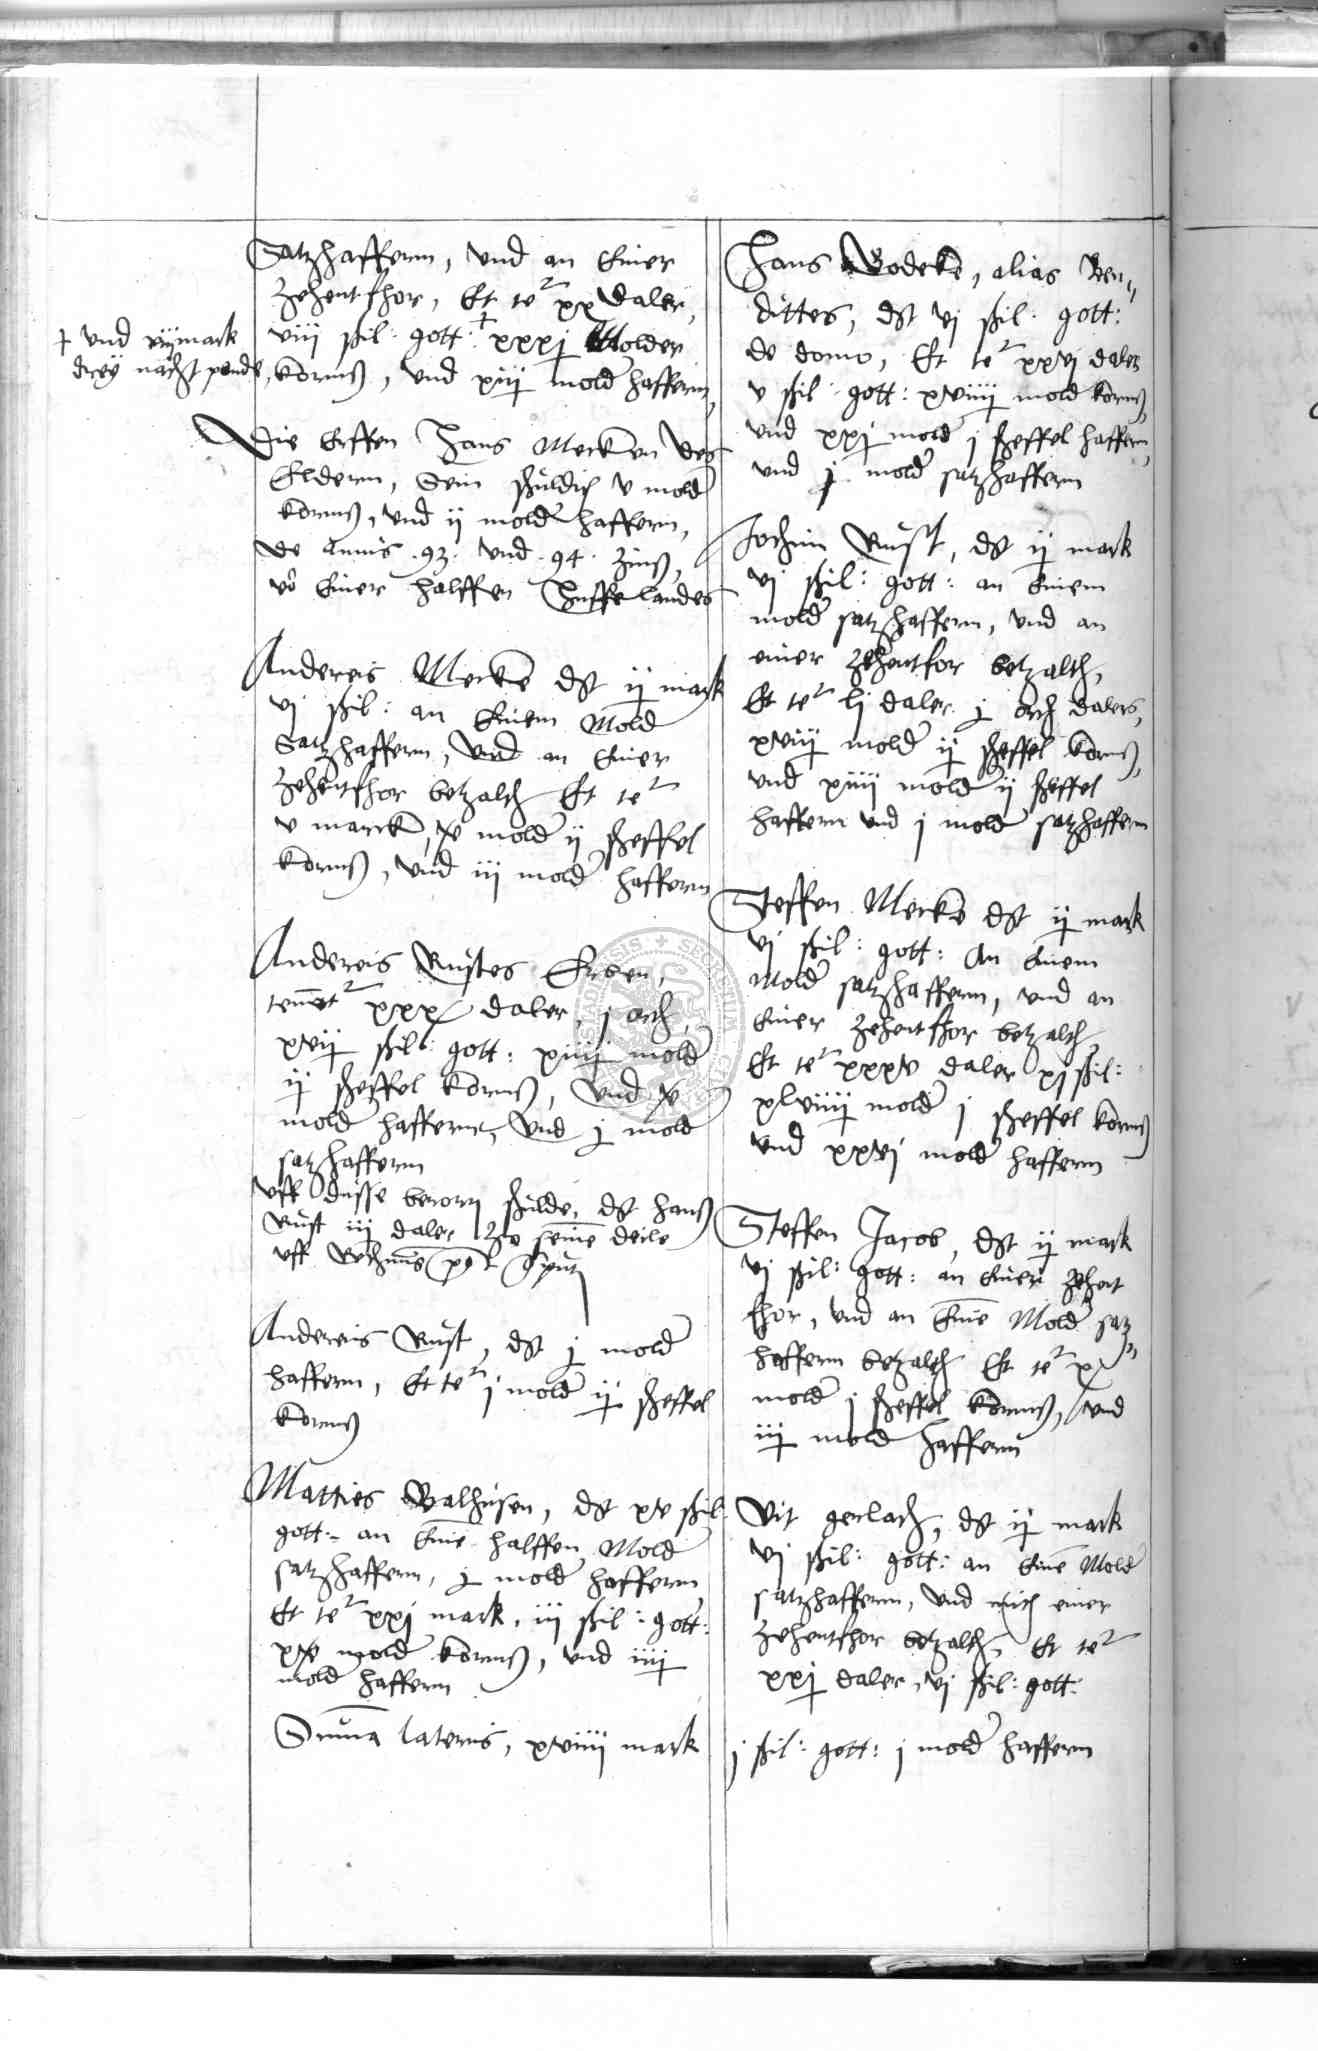 Satzhaffernn, vnd an Einer
zehentfhor, Et te^r xx daler,
viii ßil: gott: † xxxj Molder
kornns, vnd xiij mold haffernn,
† vnd iij mark
drey nacht pende,
Die Erffen Hans Mecken des
Eldern, Sein schuldich v mold
kornns, vnd ij mold haffernn,
de Annis .93. vnd .94. zinß,
vō Einer halffen Huffe landes
Andereis Mecke dt ij mark
vj ßil: an Einem Mold
Satzhaffernn, vnd an Einer
zehentfhor betzalth Et te^r
v marck, x mold ij scheffel
kornns, vnd iij mold haffernn
Andereis Rustes Erben,
tenet^r xxx daler, j orth,
xvij ßil: gott: xiiij mold
ij scheffel kornns, vnd x
mold haffernn, vnd j mold
satzhaffernn
vff dusse schulde, dt hans
Rust iij daler zu seine deile
vff
Andereis Rust, dt j mold
haffernn, Et te^r j mold ij scheffel
kornns
Matties Balhusen, dt xv ßil:
gott: an Eine halffen Mold
satzhaffernn, j mold haffernn
Et te^r xxj mark, iii ßil: gott:
xx mold kornns, vnd iiij
mold haffernn
Suma lateris, xviiij mark
Hans Bodeke, alias Ben„
dittes, dt vj ßil: gott:
de domo, Et te^r xxvj daler
v ßil: gott: xviiij mold kornns,
vnd xxj mold j scheffel haffern,
vnd j mold satzhaffernn
Jochim Rust, dt ij mark
vj ßil: gott: an Einem
mold satzhaffernn, vnd an
einer zehentfor betzalth,
Et te^r lj daler j orth dalers,
xviij mold ij scheffel kornns,
vnd xiiij mold ij scheffel
haffern vnd j mold satzhaffern
Steffen Mecke dt ij mark
vj ßil: gott: An Einem
Mold satzhaffernn, vnd an
Einer zehentfhor betzalth
Et te^r xxxv daler xj ßil:
xlviiij mold j scheffel kornns
vnd xxvj mold haffernn
Steffen Jacob, dt ij mark
vj ßil: gott: an Einer zehent
fhor, vnd an Eine Mold satz„
haffernn betzalth Et te^r x
mold j scheffel kornns, vnd
iij mold haffernn
Vit gerlach, dt ij mark
vj ßil: gott: an Eine Mold
satzhaffernn, vnd mith einer
zehentfhor betzalth, Et te^r
xxj daler, vj ßil: gott:
j ßil: gott: j mold haffernn